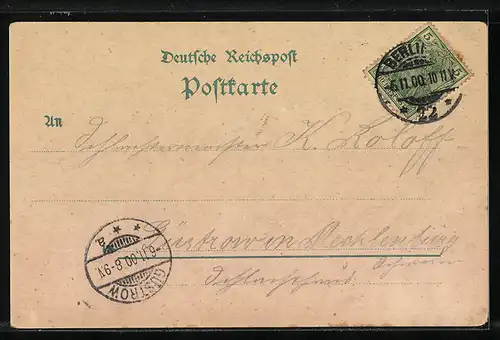 Deutsche Reichspost
Postkarte
An
Schlachtermeister K. Koloff
Güstrow in Mecklenburg
BERLIN
6.11.00.10-11V.
* 22 *
5
GÜSTROW
6.11.00.8-9V.
* * a